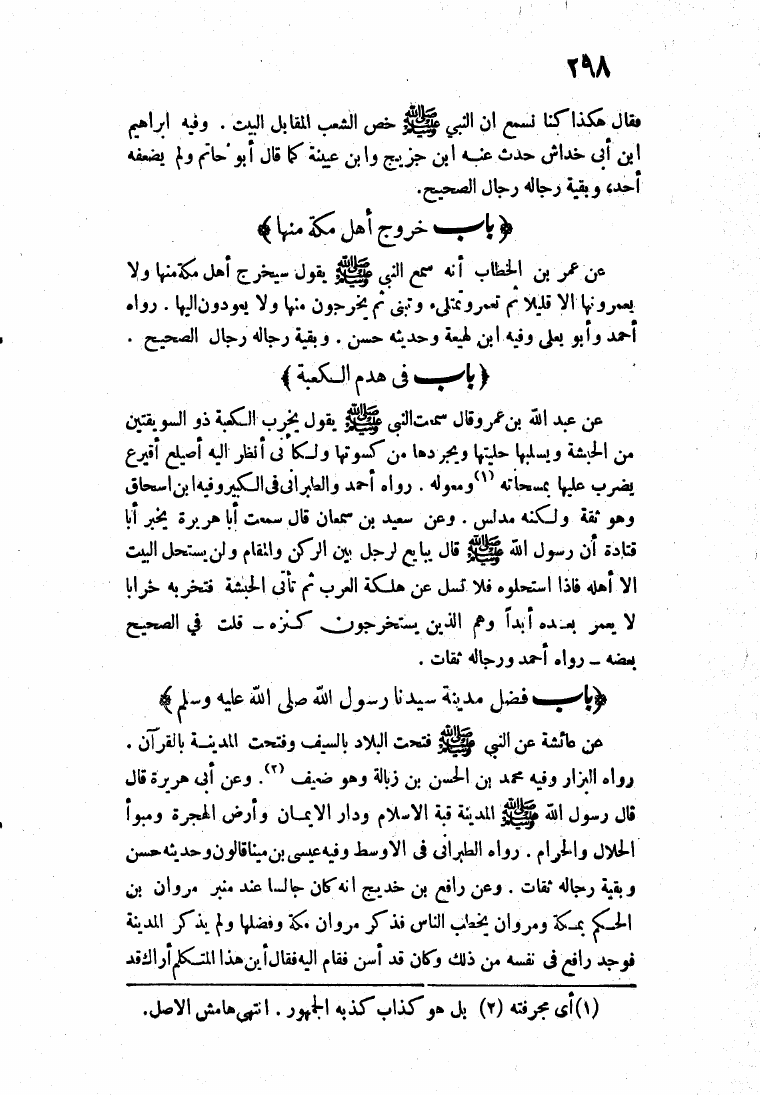 ٢٩٨
فقال هكذا كنا نسمع ان النبي ﷺ خص الشعب المقابل البيت . وفيه ابراهيم
ابن أبى خداش حدث عنه ابن جريج وابن عيينة كما قال أبو حاتم ولم يضعفه
أحد، وبقية رجاله رجال الصحيح.
﴿ باب خروج أهل مكة منها ﴾
عن عمر بن الخطاب أنه سمع النبي ﷺ يقول سيخرج أهل مكة منها ولا
يعمرونها الا قليلا ثم تعمر وتمتلىء وتبنى ثم يخرجون منها ولا يعودون اليها . رواه
أحمد وأبو يعلى وفيه ابن لهيعة وحديثه حسن . وبقية رجاله رجال الصحيح .
﴿ باب فى هدم الكعبة ﴾
عن عبد الله بن عمرو قال سمعت النبي ﷺ يقول يخرب الكعبة ذو السويقتين
من الحبشة ويسلبها حليتها ويجردها من كسوتها ولكأنى أنظر اليه أصيلع أفيدع
يضرب عليها بمسحاته (١) ومعوله . رواه أحمد والطبرانى فى الكبير وفيه ابن اسحاق
وهو ثقة ولكنه مدلس . وعن سعيد بن سمعان قال سمعت أبا هريرة يخبر أبا
قتادة أن رسول الله ﷺ قال يبايع لرجل بين الركن والمقام ولن يستحل البيت
الا أهله فاذا استحلوه فلا تسل عن هلكة العرب ثم تأتى الحبشة فتخربه خرابا
لا يعمر بعده أبداً وهم الذين يستخرجون كنزه ــ قلت في الصحيح
بعضه ــ رواه أحمد ورجاله ثقات .
﴿ باب فضل مدينة سيدنا رسول الله صلى الله عليه وسلم ﴾
عن عائشة عن النبي ﷺ فتحت البلاد بالسيف وفتحت المدينة بالقرآن .
رواه البزار وفيه محمد بن الحسن بن زبالة وهو ضعيف (٢). وعن أبى هريرة قال
قال رسول الله ﷺ المدينة قبة الاسلام ودار الايمان وأرض الهجرة ومبوأ
الحلال والحرام . رواه الطبرانى فى الاوسط وفيه عيسى بن مينا قالون وحديثه حسن
وبقية رجاله ثقات . وعن رافع بن خديج انه كان جالسا عند منبر مروان بن
الحكم بمكة ومروان يخطب الناس فذكر مروان مكة وفضلها ولم يذكر المدينة
فوجد رافع فى نفسه من ذلك وكان قد أسن فقام اليه فقال أين هذا المتكلم أراك قد
(١) أى مجرفته (٢) بل هو كذاب كذبه الجمهور . انتهى هامش الاصل.